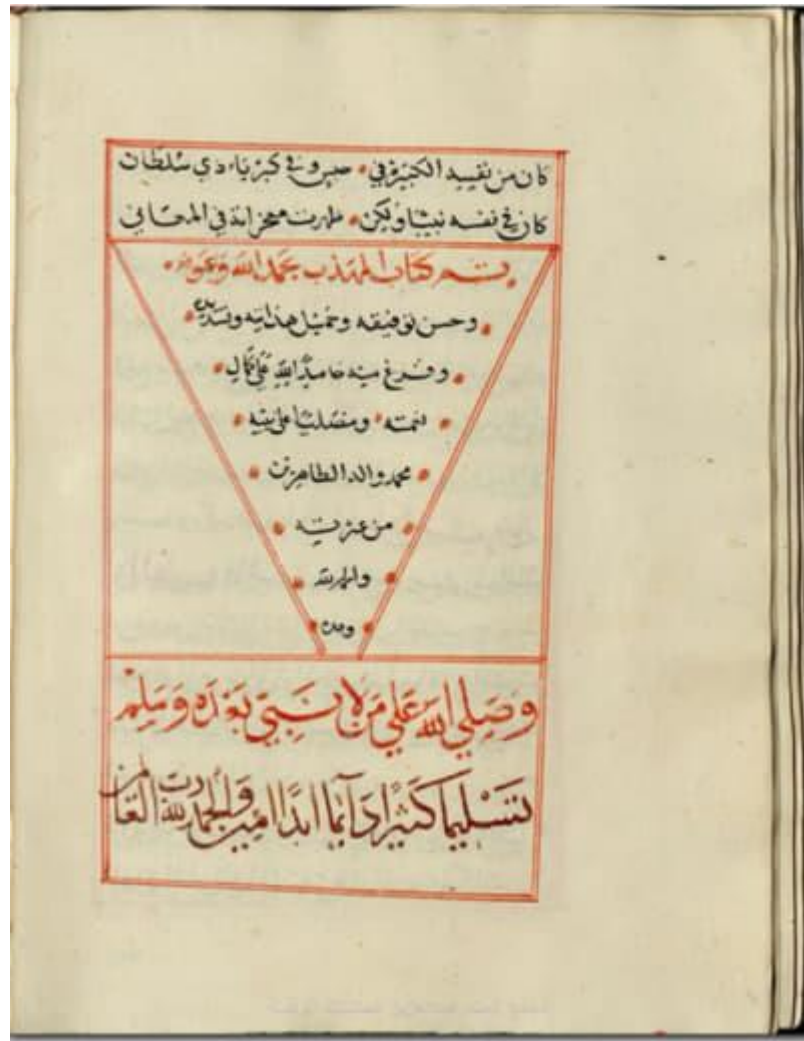 كان من نفسه الكبيرة في جيش وفي كبرياء ذي سلطان
كان في نفسه نبيا ولكن ظهرت معجزاته في المعاني
تم كتاب المهذب بحمد الله وعونه
وحسن توفيقه وجميل هدايته وتسديده
وفرغ منه حامدا لله على كمال
نعمته ومصليا على نبيه
محمد واله الطاهرين
من عترته
والحمد لله
وحده
وصلي الله علي من لا نبي بعده وسلم
تسليما كثيرا دآئما ابدا امين والحمد لله رب العالمين